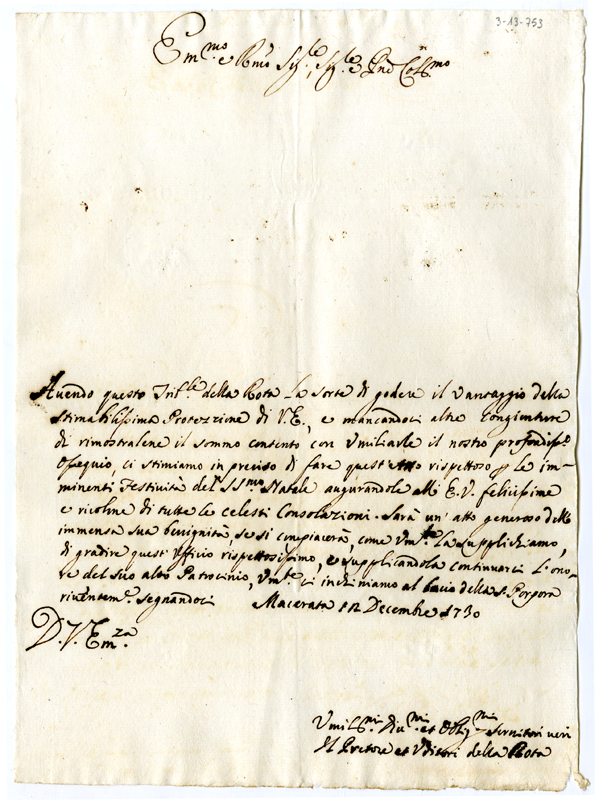 3-13-753
Em.mo e Rmo Sig.re, Sig.re e Pne Col.mo
Avendo questo Trib.le della Rota la sorte di godere il vantaggio della
stimabilissima Protezzione di V.E., e mancandoci altre congionture
di rimostralene il sommo contento con umiliarle il nostro profondiss.o
Ossequio, ci stimiamo in preciso di fare quest'atto rispettoso le im-
minenti Festività del SSmo Natale augurandole all'E.V. felicissime
e ricolme di tutte le celesti Consolazioni. Sarà un'atto generoso dell'
immensa sua benignità, se si compiacerà, come Um.te La supplichiamo,
di gradire quest'Ufficio rispettosissimo, e supplicandola continuarci l'ono-
re del suo alto Patrocinio, Um.te ci inchiniamo al bacio della S. Porpora
riverentem.e segnandoci Macerata 12 Decembre 1730
D. V. Em.za
Umil.mi Div.mi et Obblig.mi Servitori veri
Il Pretore et Uditori della Rota